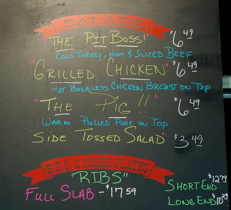 EAT MORE
THE PIT BOSS! $6.49
COLD TURKEY, HAM & SLICED BEEF
"GRILLED CHICKEN" $6.49
HOT BONELESS CHICKEN BREAST ON TOP
"THE PIG!!" $6.49
WARM PULLED PORK ON TOP
"SIDE TOSSED SALAD" $3.49
"RIBS"
FULL SLAB - $17.59
SHORT END
LONG END